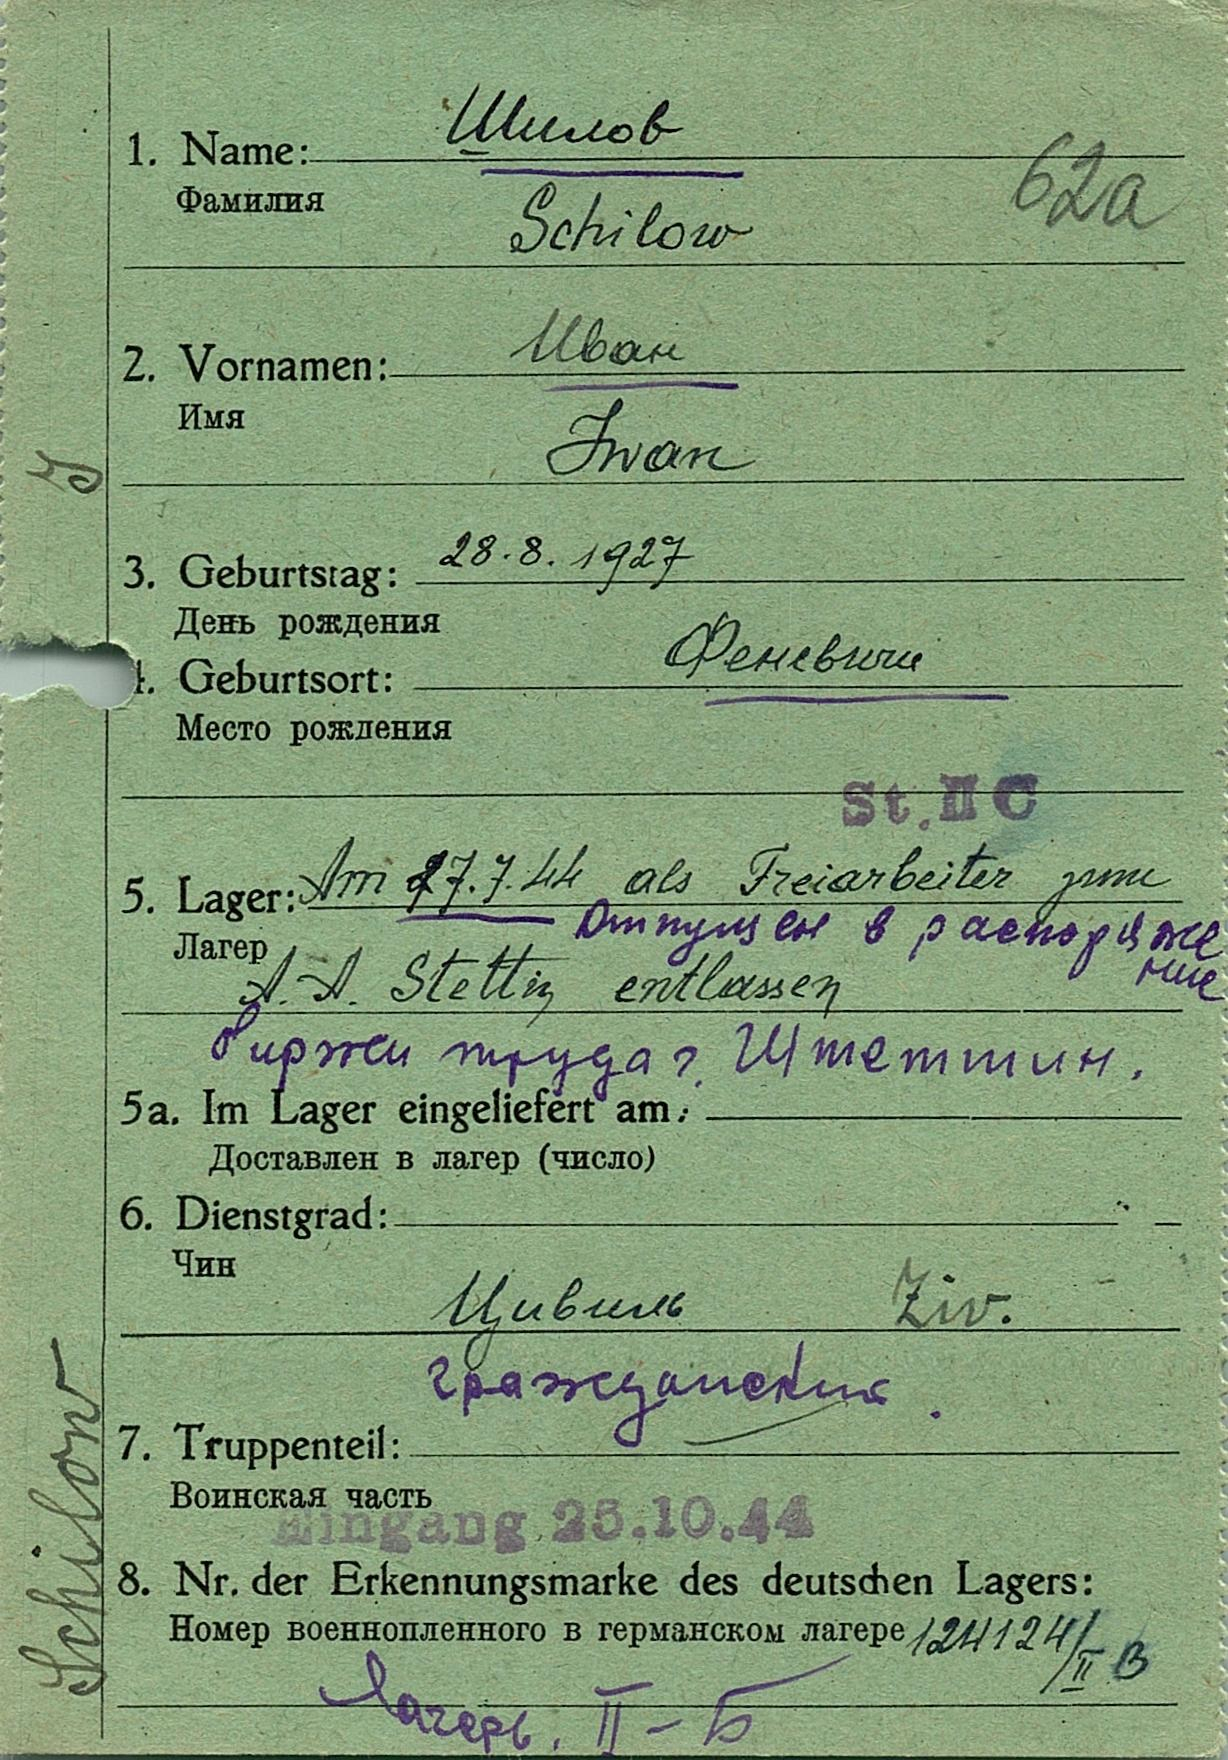 Шилов
1. Name:
62a
Фамилия
Schilow
Иван
2. Vornamen:
Имя
Iwan
28.8.1927
3. Geburtstag:
День рождения
Феневичи
4. Geburtsort:
Место рождения
St. II C
5. Lager: Am 27.7.44 als Freiarbeiter zum
Лагер
Отпущен в распоряже
ние
A.A. Stettin entlassen
биржи труда г. Штеттин.
5a. Im Lager eingeliefert am:
Доставлен в лагер (число)
6. Dienstgrad:
Чин
Цивиль Ziv.
гражданский.
7. Truppenteil:
Воинская часть
Eingang 25.10.44
8. Nr. der Erkennungsmarke des deutschen Lagers:
Номер военнопленного в германском лагере 124124/II B
Лагерь. II-Б
Schilow J